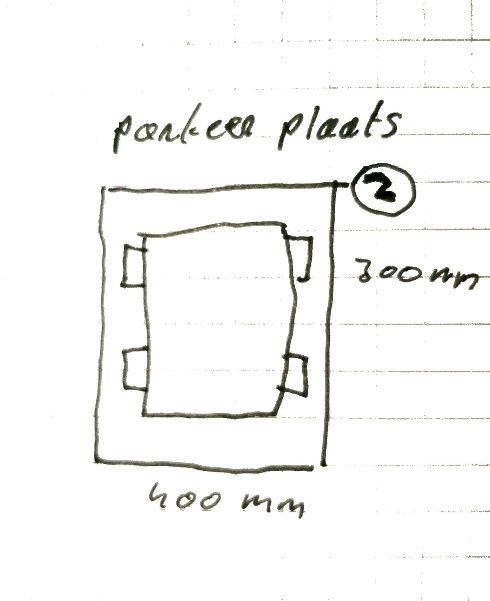 parkeer plaats
2
300mm
400 mm